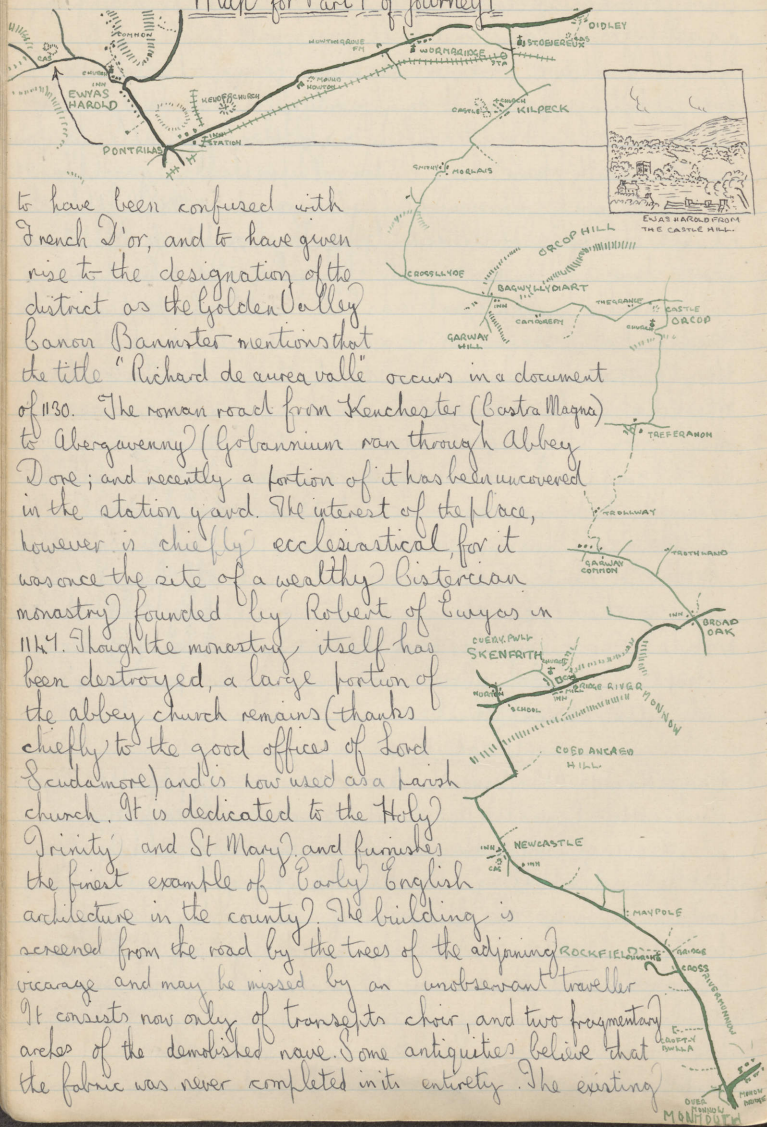 Map for Part I of journey.
DIDLEY
COMMON
HUNTHEGROVE FM
WORMBRIDGE
ST. DEVEREUX
STA
CAS
CHURCH
INN
EWYAS HAROLD
MOUNT
KENDERCHURCH
CASTLE
CHURCH
KILPECK
INN
STATION
PONTRILAS
SMITHY
MORLAIS
EWAS HAROLD FROM
THE CASTLE HILL.
ORCOP HILL
CROSSLLYDE
BAGWYLLYDIART
INN
THE GRANGE
CASTLE
CHURCH
ORCOP
GARWAY HILL
TREFERANON
TROLLWAY
GARWAY COMMON
TROTHLAND
INN
BROAD OAK
SKENFRITH
CHURCH
MILL
INN
BRIDGE
RIVER MONNOW
NORTON
SCHOOL
COED ANGRED HILL
INN
NEWCASTLE
CAS
INN
MAYPOLE
ROCKFIELD
CHURCH
BRIDGE
CROSS
RIVER MONNOW
CROFT-Y-BWLLA
OVER MONNOW
MONNOW BRIDGE
MONMOUTH
to have been confused with
French D'or, and to have given
rise to the designation of the
district as the Golden Valley
Canon Bannister mentions that
the title "Richard de aurea valle" occurs in a document
of 1130. The roman road from Kenchester (Castra Magna)
to Abergavenny (Gobannium ran through Abbey
Dore; and recently a portion of it has been uncovered
in the station yard. The interest of the place,
however is chiefly ecclesiastical, for it
was once the site of a wealthy Cistercian
monastry founded by Robert of Ewyas in
1147. Though the monastry itself has
been destroyed, a large portion of
the abbey church remains (thanks
chiefly to the good offices of Lord
Scudamore) and is now used as a parish
church. It is dedicated to the Holy
Trinity and St Mary, and furnishes
the finest example of Early English
architecture in the county. The building is
screened from the road by the trees of the adjoining
vicarage and may be missed by an unobservant traveller
It consists now only of transepts choir, and two fragmentary
arches of the demolished nave. Some antiquities believe that
the fabric was never completed in its entirety. The existing